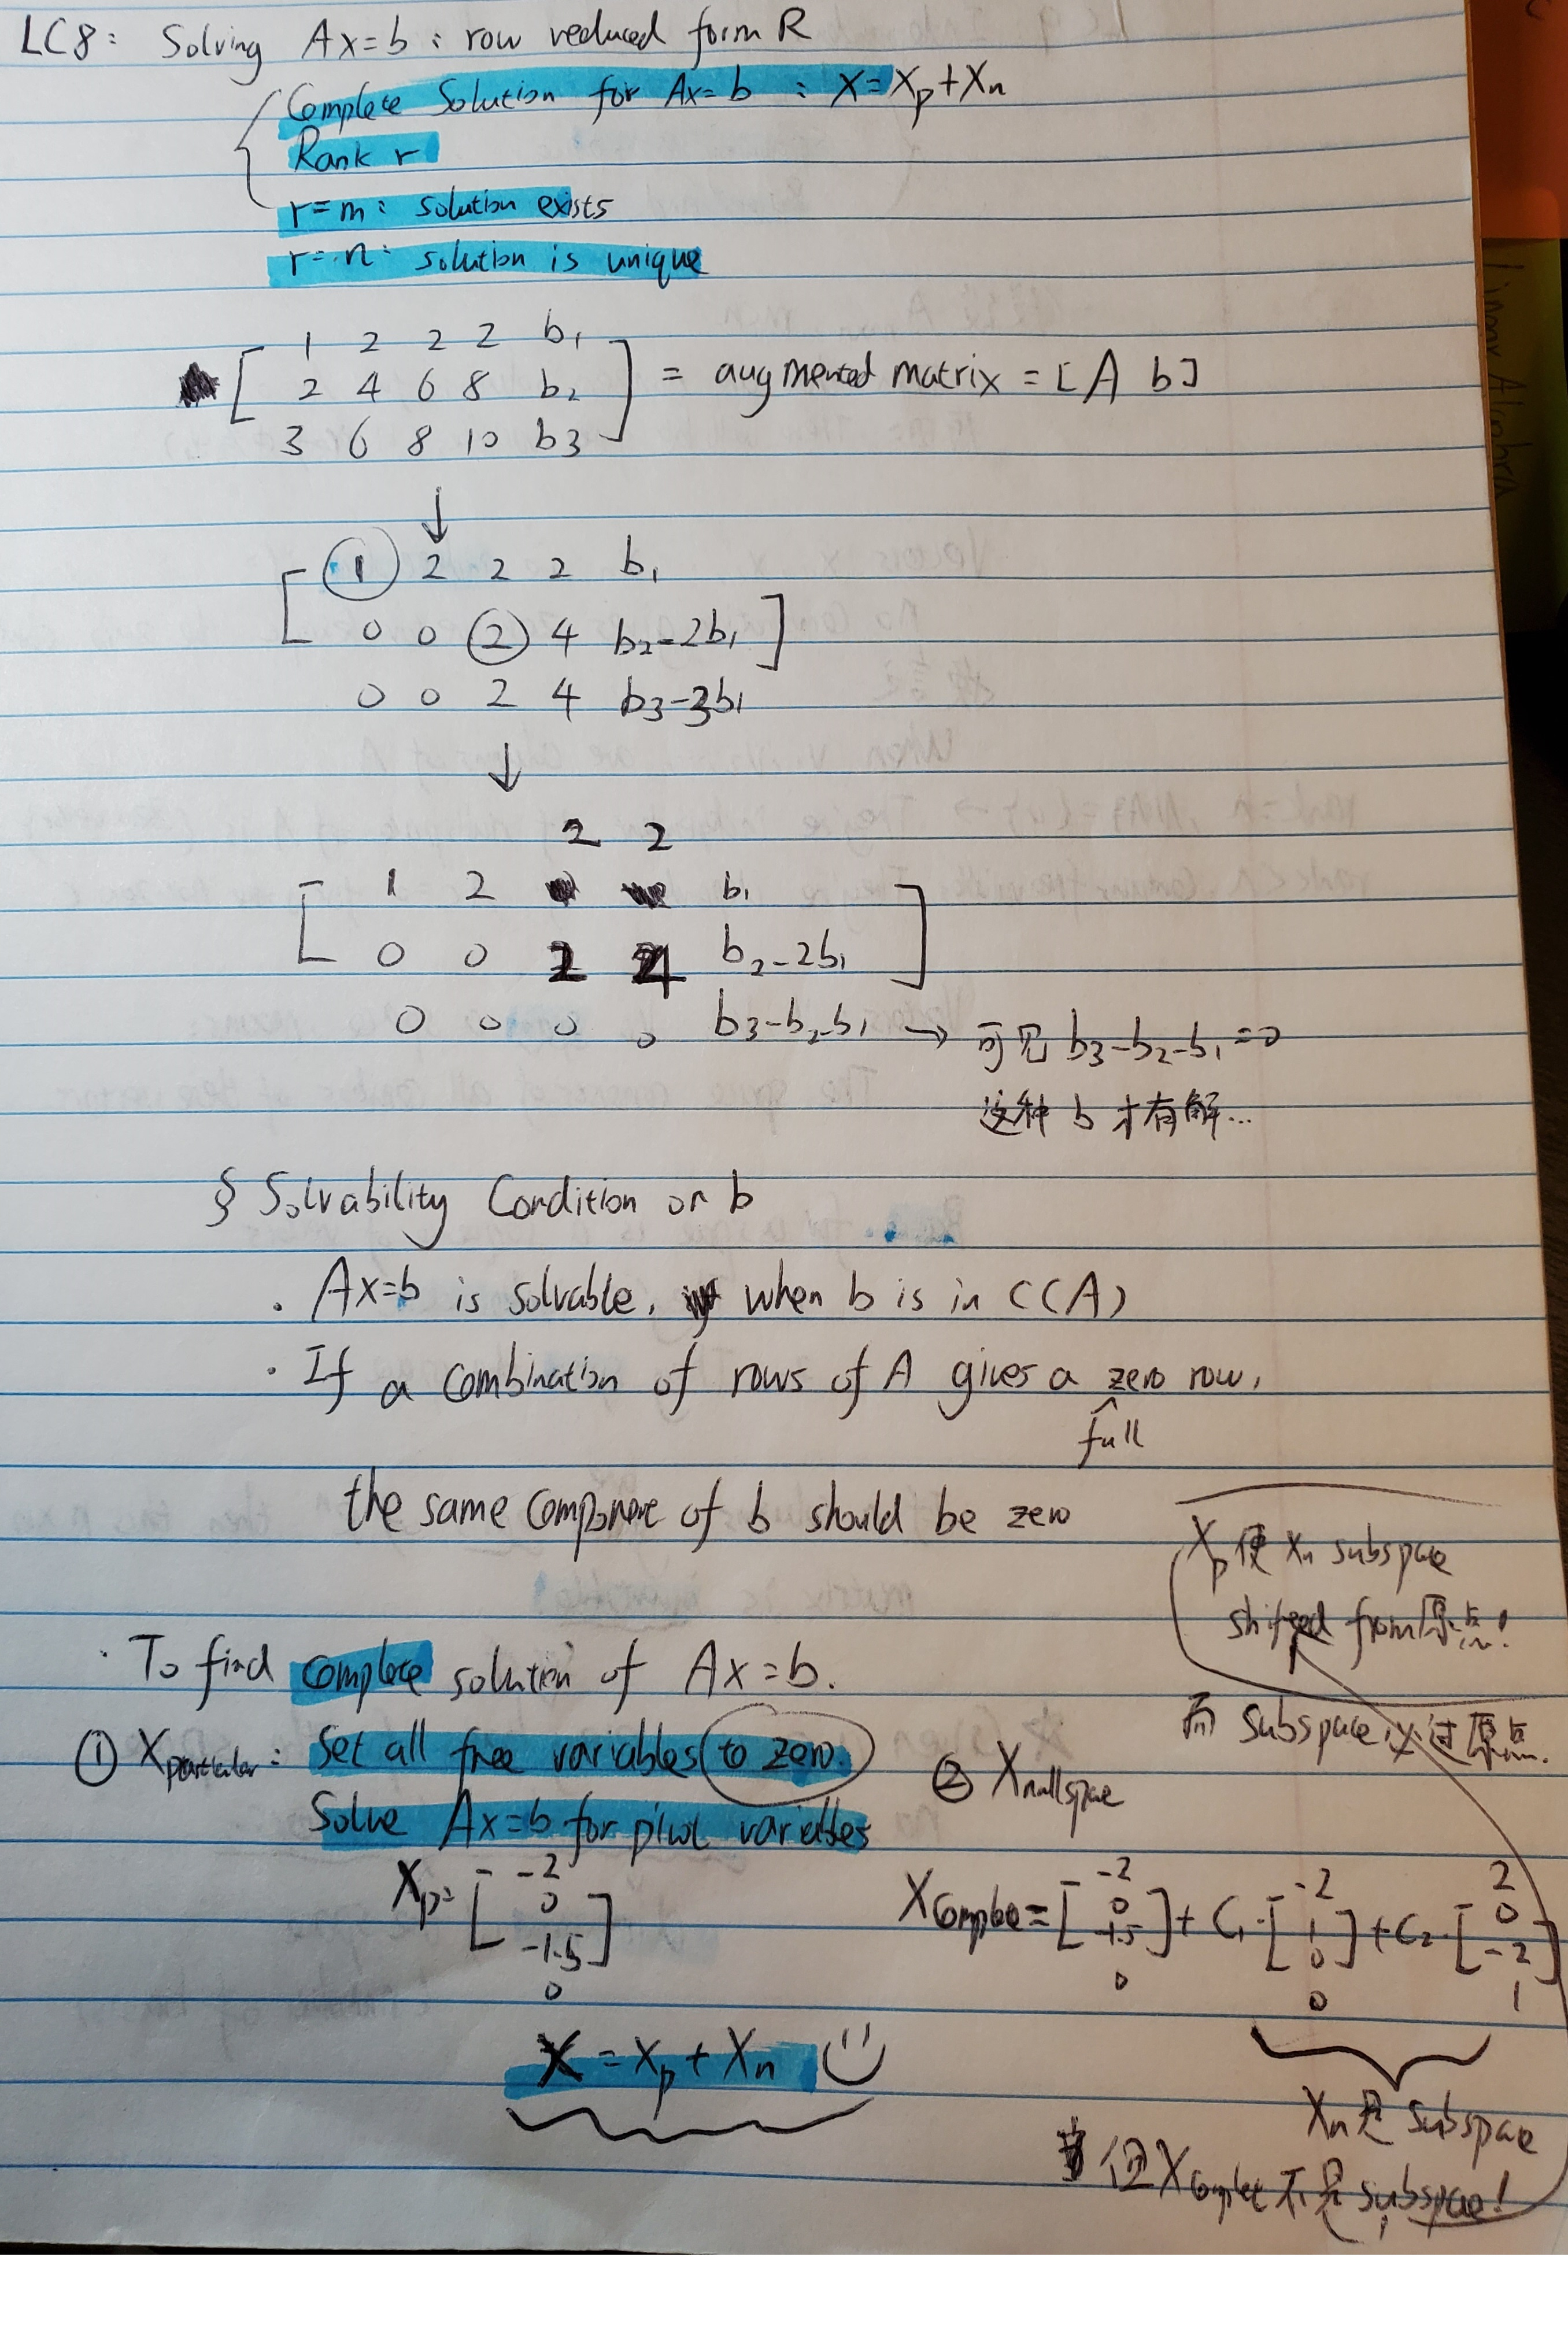 LC8: Solving Ax=b: row reduced form R
Complete Solution for Ax=b : X=Xp+Xn
Rank r
r=m: solution exists
r=n: solution is unique
1 2 2 2 b1
[ 2 4 6 8 b2 ] = augmented matrix = [A b]
3 6 8 10 b3
↓
[ 1 2 2 2 b1
0 0 2 4 b2-2b1 ]
0 0 2 4 b3-3b1
↓
2 2
[ 1 2 b1 ]
0 0 2 4 b2-2b1
0 0 0 0 b3-b2-b1 → 可见 b3-b2-b1=0
这种 b 才有解...
§ Solvability Condition on b
· Ax=b is solvable, when b is in C(A)
· If a combination of rows of A gives a zero row,
full
the same component of b should be zero
Xp 使 Xn subspace
shifted from 原点!
· To find complete solution of Ax=b.
而 subspace 过原点.
① Xparticular: Set all free variables to zero.
Solve Ax=b for pivot variables
② Xnullspace
Xp= [ -2 0 -1.5 0 ]
Xcomplete = [ -2 0 -1.5 0 ] + C1·[ -2 1 0 0 ] + C2·[ 2 0 -2 1 ]
X = Xp + Xn
Xn是 subspace
但Xcomplet 不是 subspace!